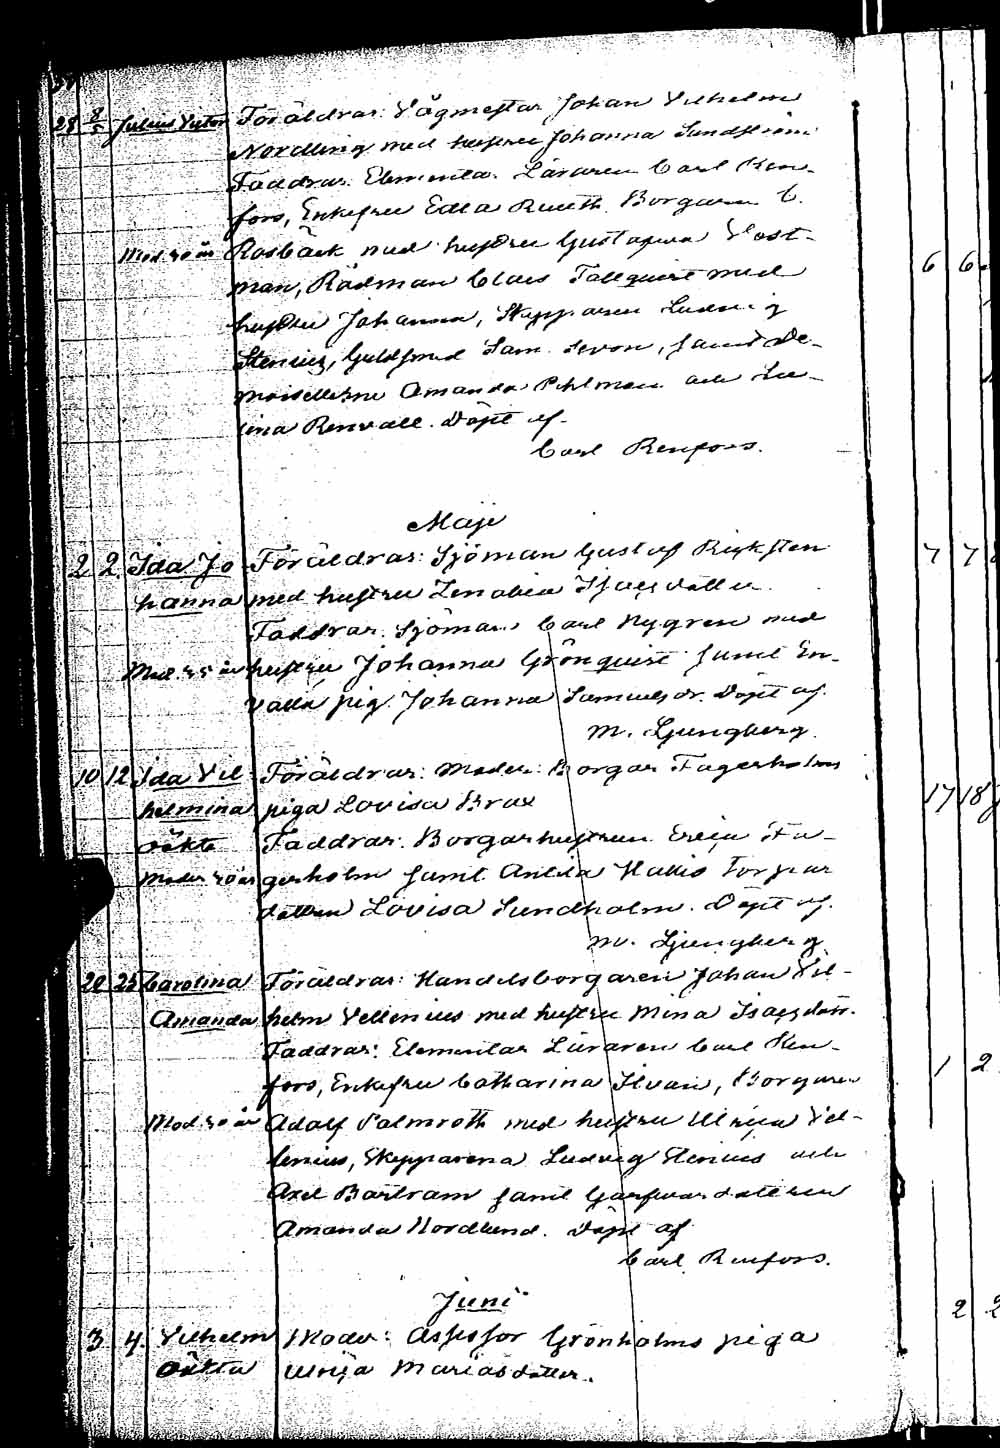 28 8/5 Julius Victor Föräldrar: Vågmestar Johan Vilhelm
Nordling med hustru Johanna Sundström
Faddrar: Elementar Läraren Carl Ren-
fors, Enkefru Edla Rueth. Borgaren C.
Mod. 30 år Rosbäck med hustru Gustafva Vest-
man, Rådman Claes Tallquist med
hustru Johanna, Skepparen Ludvig
Stenius, Guldsmed Sam. Levon, samt De-
moisellerne Amanda Pehlman och
Renvall. Döpt af
Carl Renfors.
Maji
2 2. Ida Jo- Föräldrar: Sjöman Gustaf Ryksten
hanna med hustru Zenobia Isacsdotter.
Faddrar: Sjöman Carl Nygren med
Mod. 35 år hustru Johanna Grönquist samt
pig. Johanna Samuelsdr. Döpt af
M. Ljungberg.
10 12 Ida Vil- Föräldrar: Moder: Borgar Fagerholms
helmina piga Lovisa Brax
oäkta Faddrar: Borgarhustrun Erica Fa-
Moder 30 år gerholm samt Torpar
dottren Lovisa Sundholm. Döpt af
M. Ljungberg
20 25 Carolina Föräldrar: Handelsborgaren Johan Vil-
Amanda helm Vellenius med hustru Mina Isacsdott.
Faddrar: Elementar Läraren Carl Ren-
fors, Enkefru Catharina Ilvan, Borgaren
Mod. 30 år Adolf Palmroth med hustru Ulrica Vel-
lenius, Skepparena Ludvig Stenius och
Axel Bartram samt Garfvardottren
Amanda Nordlund. Döpt af
Carl Renfors.
Juni
3 4. Vilhelm Moder: Assessor Grönholms piga
oäkta Ulrica Mariasdotter.
6 6
7 7
17 18
1 2
2 2